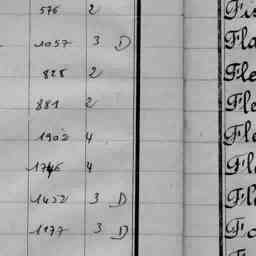 576 2 Fi
1057 3 D Fla
828 2 Fle
881 2 Fle
1902 4 Fle
1746 4 Fl
1422 3 D Fl
1177 3 D Fo